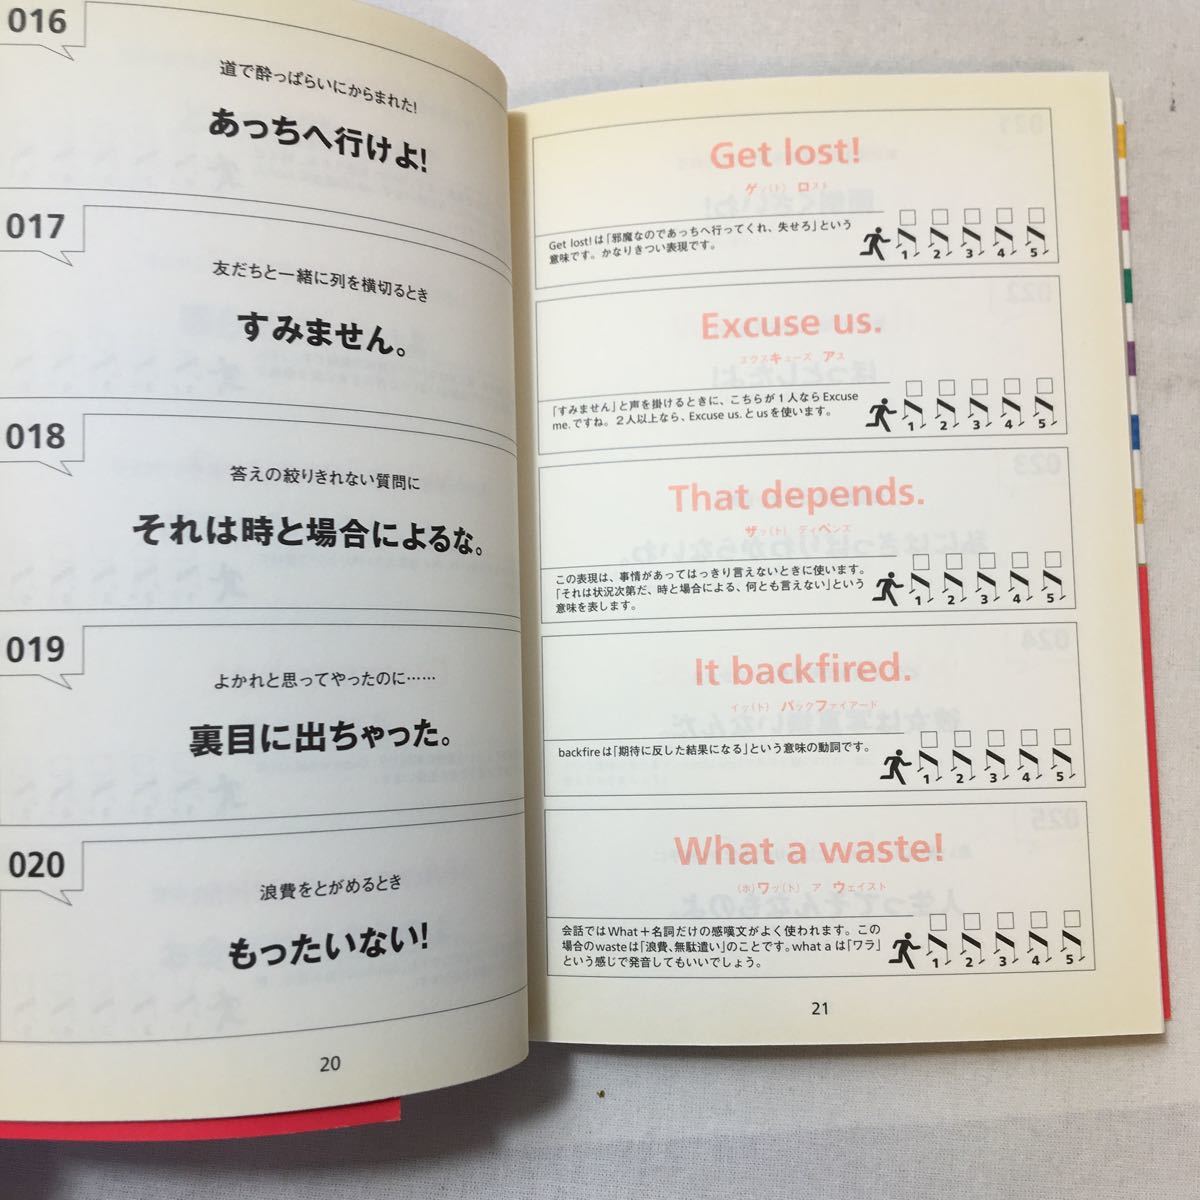 016
道で酔っぱらいにからまれた!
あっちへ行けよ!
017
友だちと一緒に列を横切るとき
すみません。
018
答えの絞りきれない質問に
それは時と場合によるな。
019
よかれと思ってやったのに……
裏目に出ちゃった。
020
浪費をとがめるとき
もったいない!
20
Get lost!
ゲッ(ト) ロスト
Get lost!は「邪魔なのであっちへ行ってくれ、失せろ」という
意味です。かなりきつい表現です。
1 2 3 4 5
Excuse us.
エクスキューズ アス
「すみません」と声を掛けるときに、こちらが1人ならExcuse
me.ですね。2人以上なら、Excuse us.とusを使います。
1 2 3 4 5
That depends.
ザッ(ト) ディペンズ
この表現は、事情があってはっきり言えないときに使います。
「それは状況次第だ、時と場合による、何とも言えない」という
意味を表します。
1 2 3 4 5
It backfired.
イッ(ト) バックファイアード
backfireは「期待に反した結果になる」という意味の動詞です。
1 2 3 4 5
What a waste!
(ホ)ワッ(ト) ア ウェイスト
会話ではWhat+名詞だけの感嘆文がよく使われます。この
場合のwasteは「浪費、無駄遣い」のことです。what aは「ワラ」
という感じで発音してもいいでしょう。
1 2 3 4 5
21